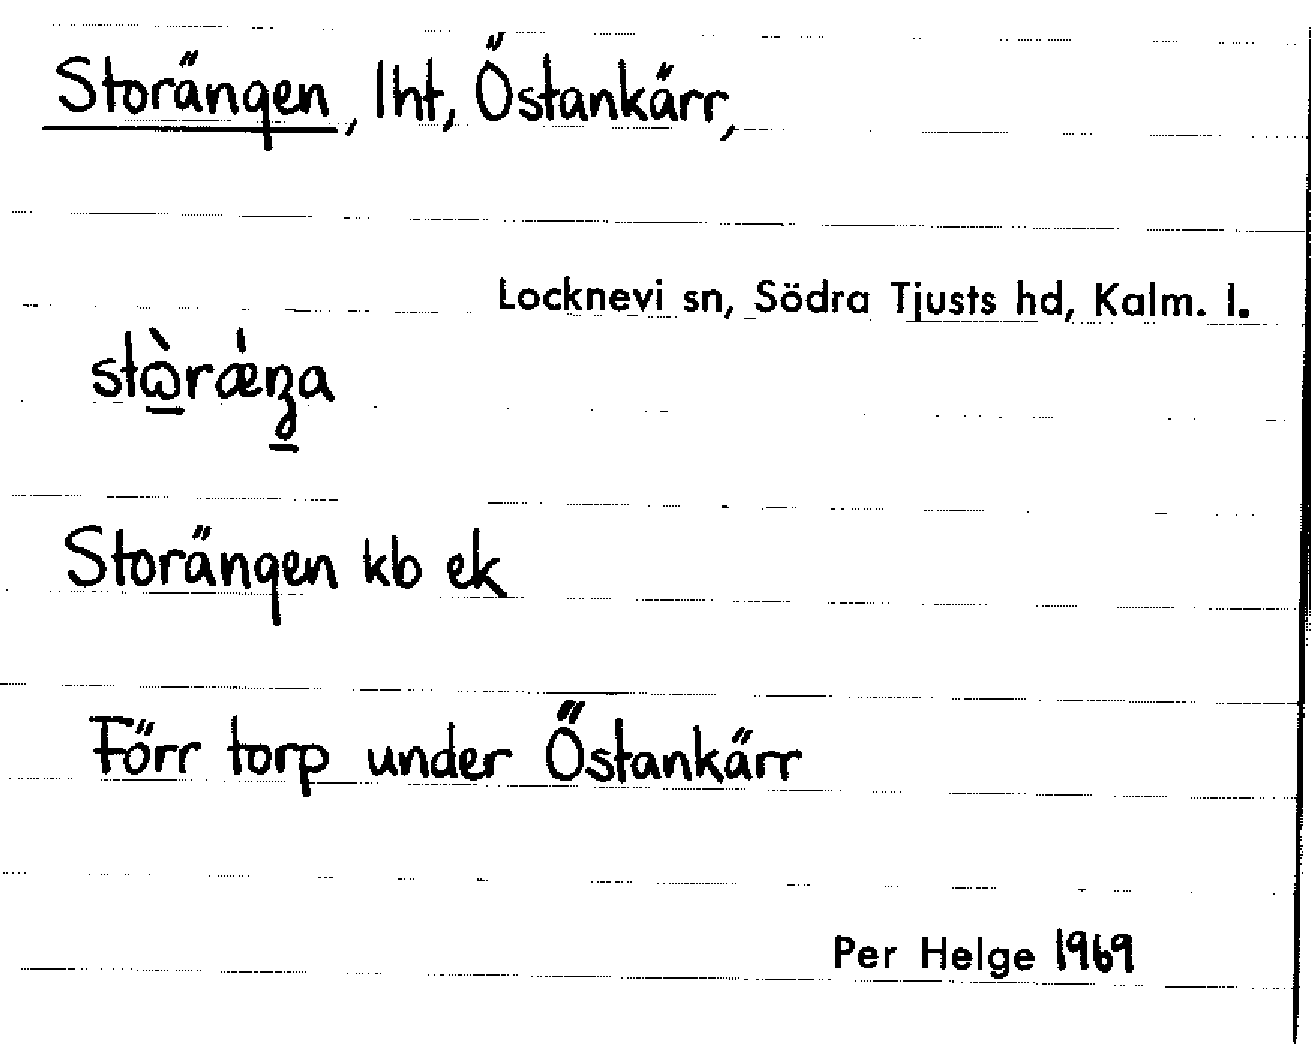 Storängen, lht, Östankärr,
Locknevi sn, Södra Tjusts hd, Kalm. l.
Storängen kb ek
Förr torp under Östankärr
Per Helge 1969